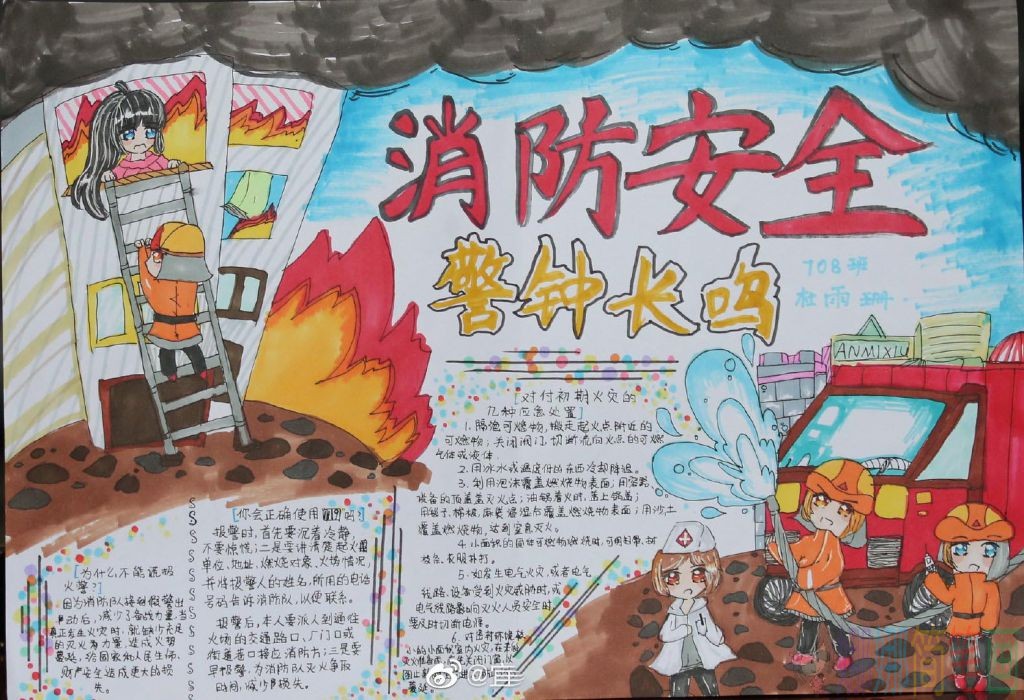 消防安全
警钟长鸣
708班
杜雨珊
ANMIXIU
[对付初期火灾的
几种应急处置]
1.隔绝可燃物,搬走起火点附近的
可燃物;关闭阀门,切断流向火点的可燃
气体或液体.
2.用冰水或温度低的东西冷却降温。
3.利用泡沫覆盖燃烧物表面;用容器
设备的顶盖盖灭火点;油锅着火时,盖上锅盖;
用毯子、棉被、麻袋等浸湿后覆盖燃烧物表面;用沙土
覆盖燃烧物,达到窒息灭火。
4.小面积的固体可燃物燃烧时,可用扫帚、树
枝条、衣服扑打。
5.如发生电气火灾,或者电气
线路、设备受到火灾威胁时,或
电气线路影响灭火人员安全时,
要及时切断电源。
6.对密封环境
小的小面积室内火灾,在未
[你会正确使用"119"吗?]
报警时,首先要沉着冷静,
不要惊慌;二是要讲清楚起火
单位、地址、燃烧对象、火场情况,
并将报警人的姓名,所用的电话
号码告诉消防队,以便联系。
报警后,本人要派人到通往
火场的交通路口、厂门口或
街道巷口接应消防力;三是要
早报警,为消防队灭火争取
时间,减少损失。
[为什么不能谎报
火警?]
因为消防队接到假警出
动后,减少了备战力量,当
真正发生火灾时,就缺少充足
的灭火力量,造成火势
蔓延,给国家和人民生命、
财产安全造成更大的损
失。